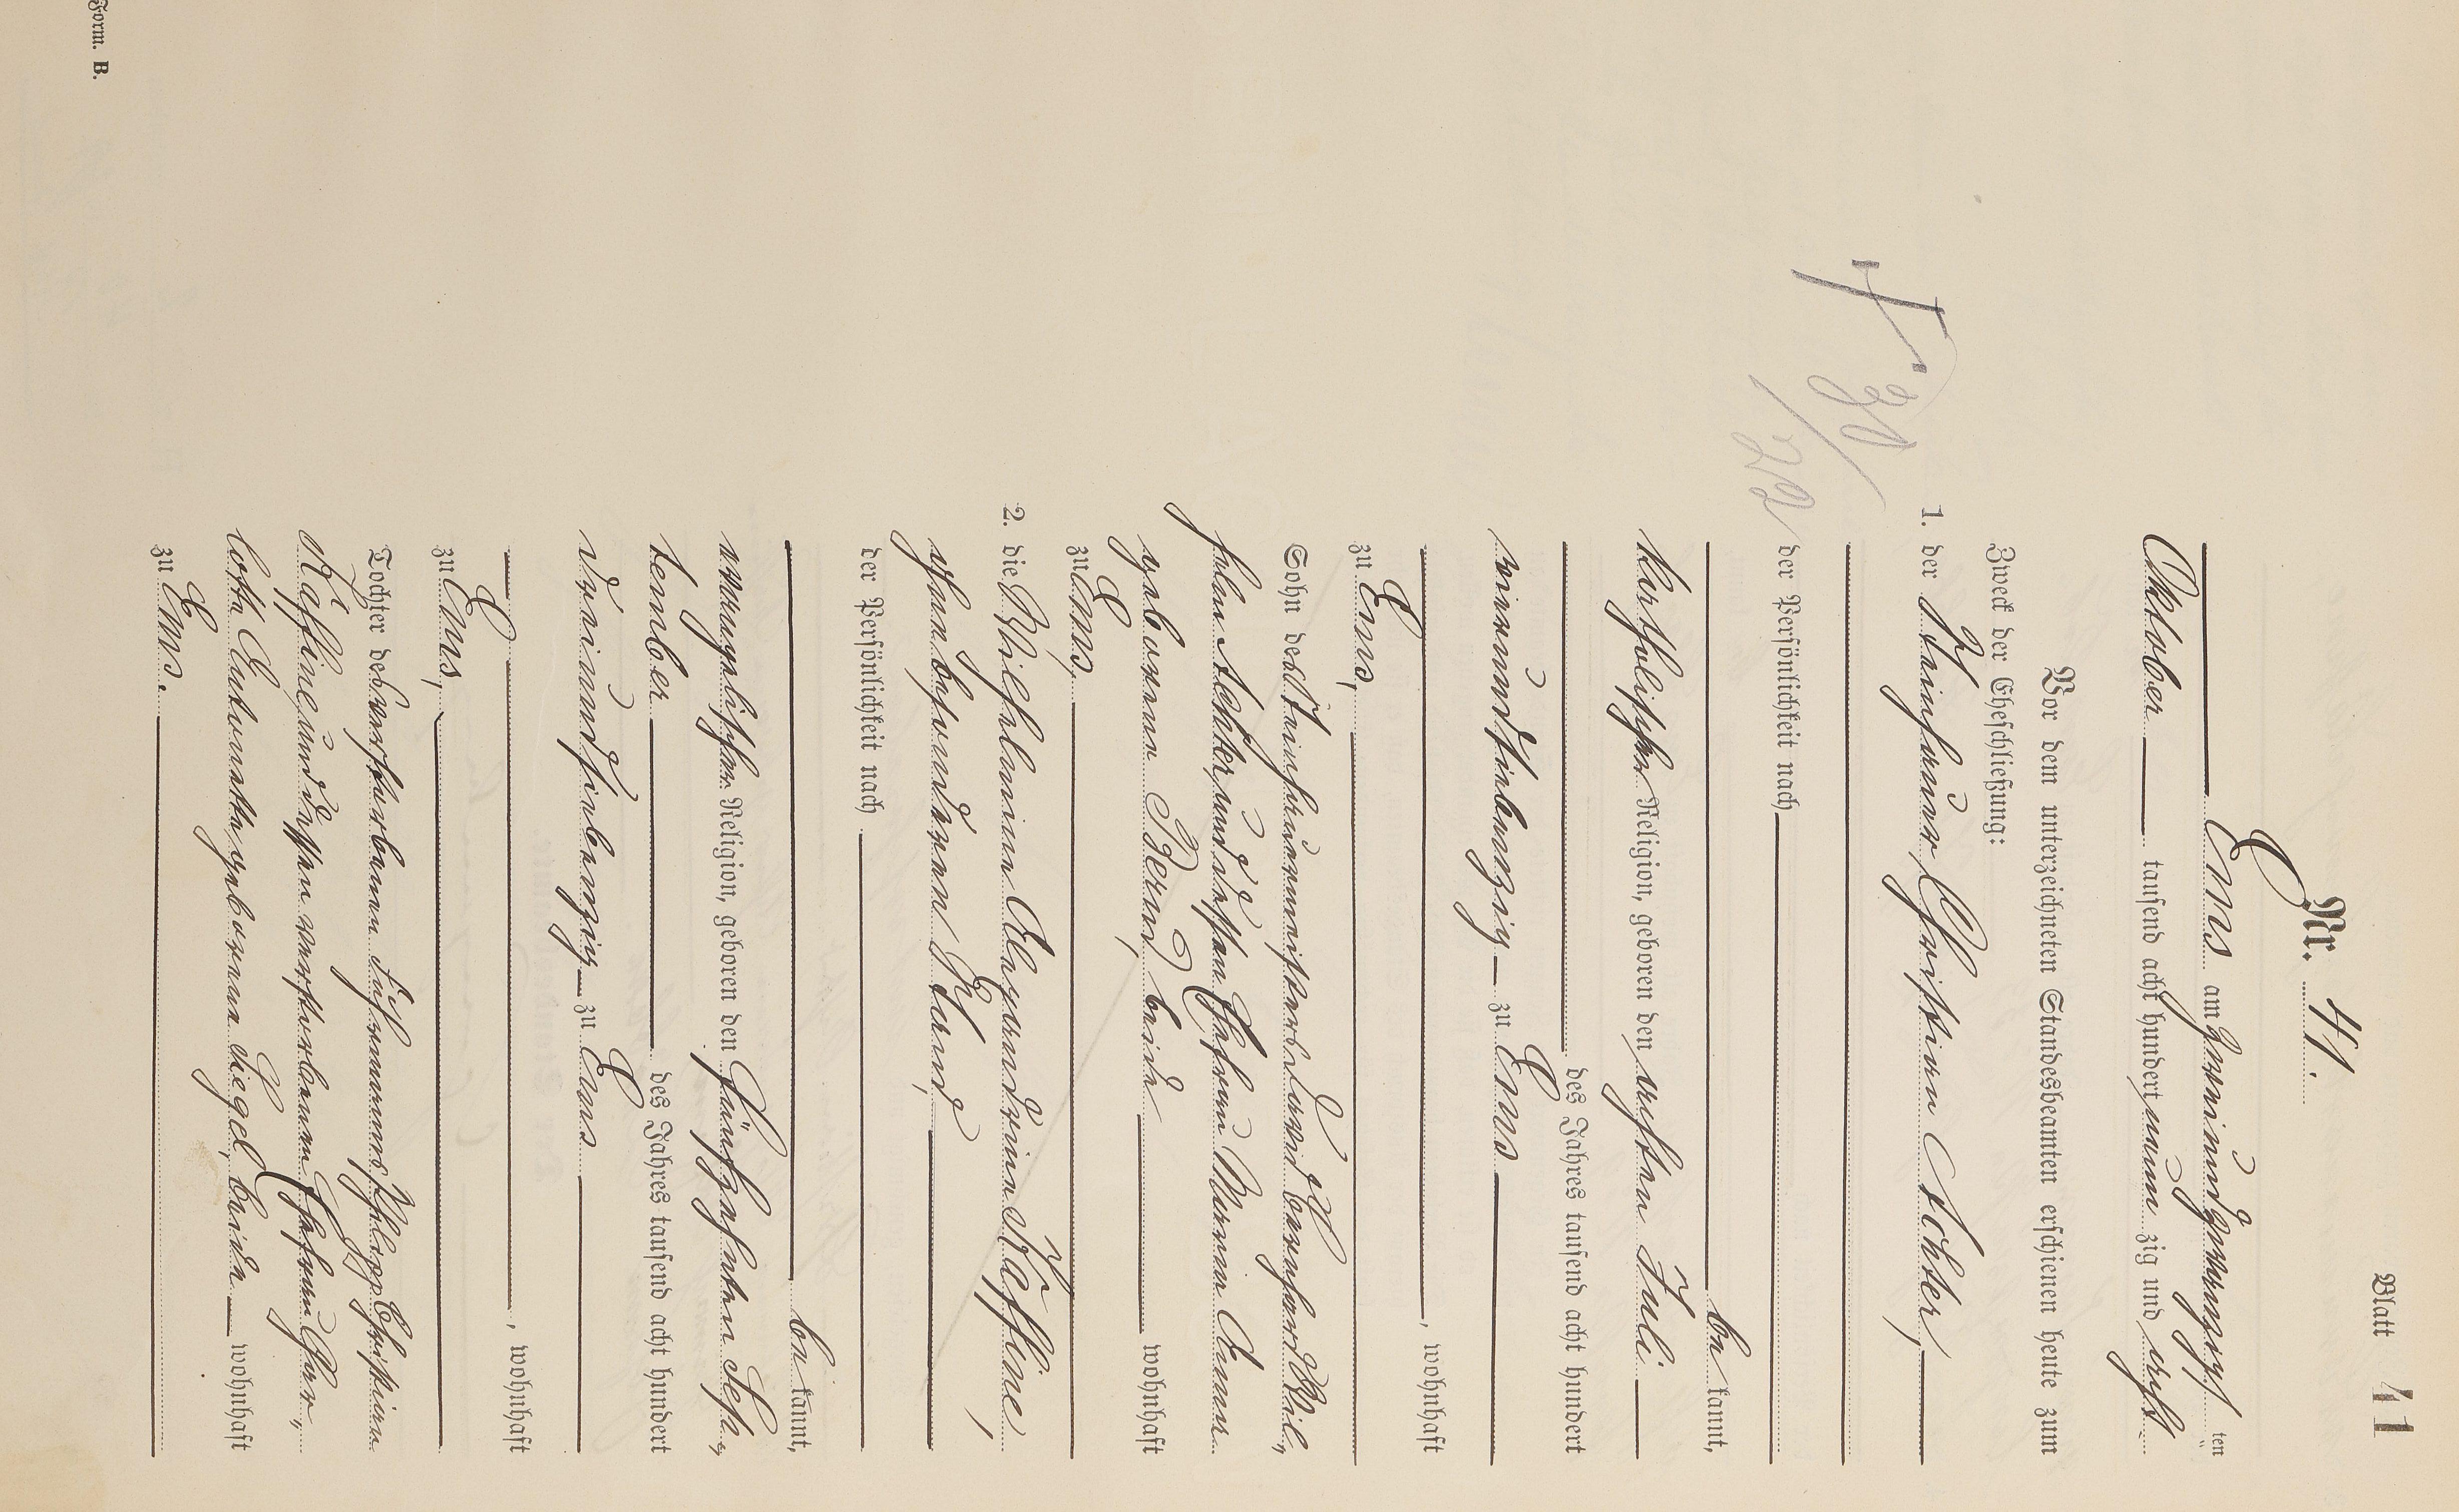 Blatt 41
Nr. 41.
Ems am zweiundzwanzigsten
Oktober tausend acht hundert neunzig und acht
Vor dem unterzeichneten Standesbeamten erschienen heute zum
Zweck der Eheschließung:
1. der Steinhauer, Christian Achter,
der Persönlichkeit nach
be kannt,
katholischer Religion, geboren den ersten Juli
des Jahres tausend acht hundert
vierundsiebenzig zu Ems
, wohnhaft
zu Ems,
Sohn des Steinhauermeisters Bernhard Wil„
helm Achter, und dessen Ehefrau Maria Anna
geborene Bernd, beide wohnhaft
zu Ems,
2. die Wilhelmine Alexandrine Käfline,
ohne besonderen Stand,
der Persönlichkeit nach
be kannt,
evangelischer Religion, geboren den fünfzehnten Sep„
tember des Jahres tausend acht hundert
dreiundsiebenzig zu Ems
, wohnhaft
zu Ems,
Tochter des verstorbenen Fuhrmanns Philipp Christian
Käfline, und dessen verstorbenen Ehefrau Char„
lotte Antonette geborene Siegel, beide wohnhaft
zu Ems.
Form. B.